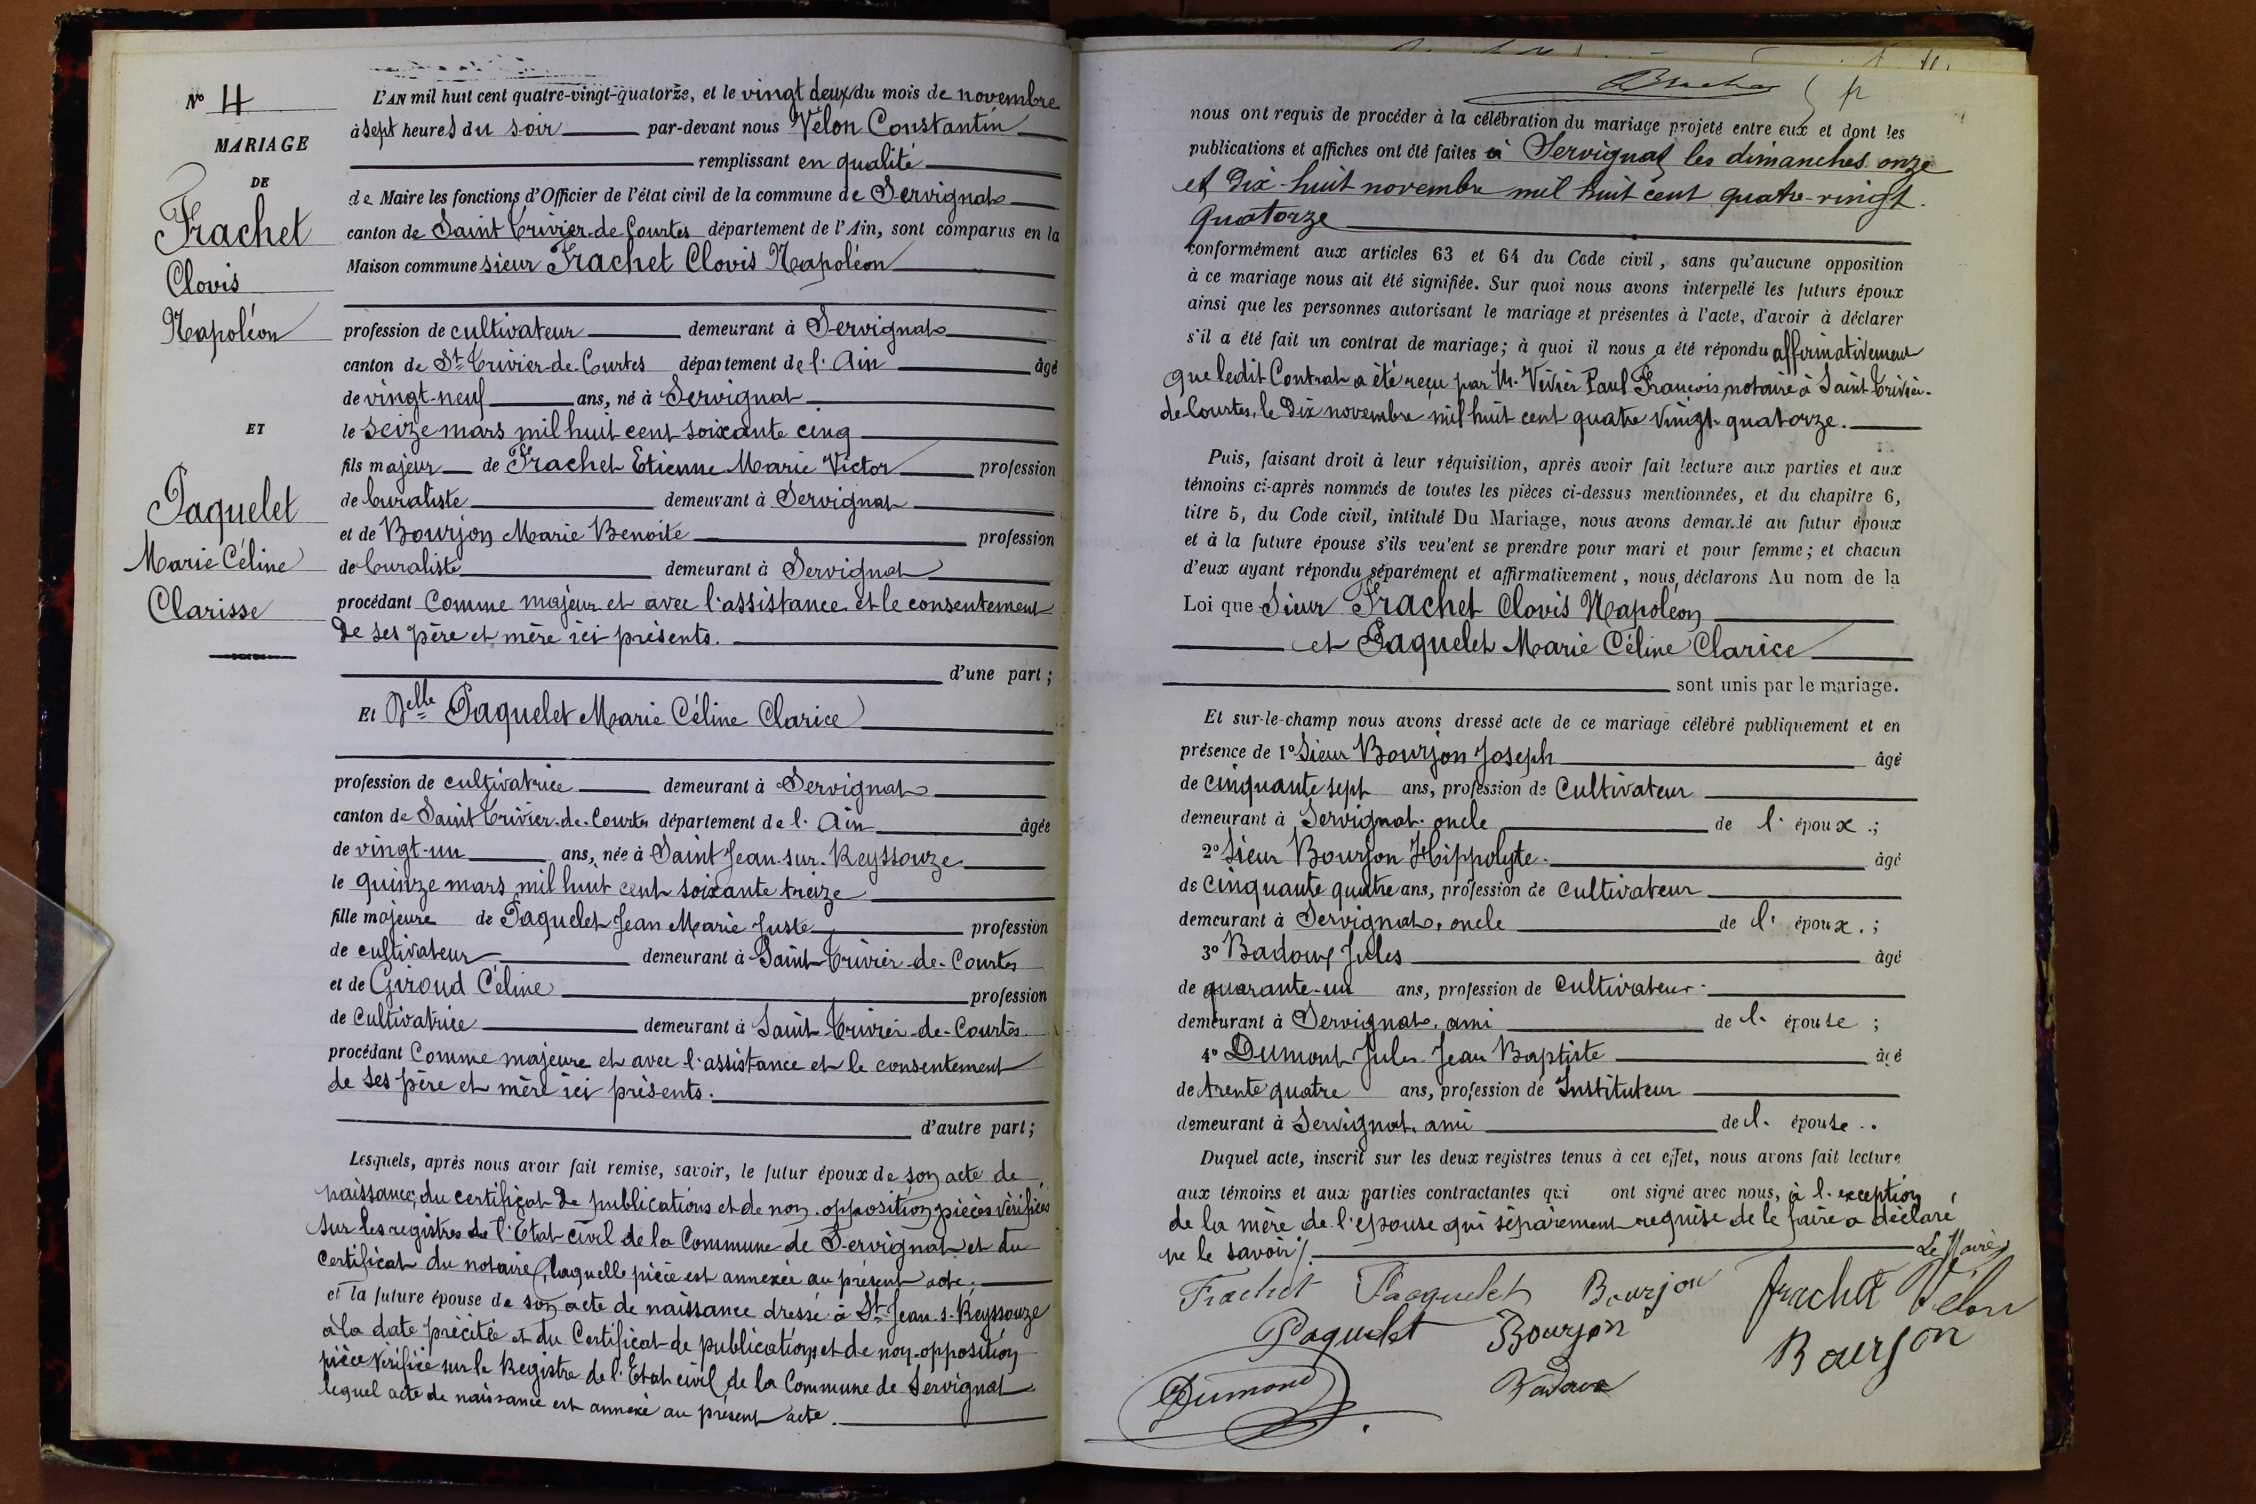 N° 4
MARIAGE
DE
Frachet
Clovis
Napoléon
ET
Paquelet
Marie Céline
Clarisse
L'AN mil huit cent quatre-vingt-quatorze, et le vingt deux du mois de novembre
à sept heures du soir par-devant nous Vélon Constantin
remplissant en qualité
de Maire les fonctions d'Officier de l'état civil de la commune de Servignat
canton de Saint Trivier-de-Courtes département de l'Ain, sont comparus en la
Maison commune sieur Frachet Clovis Napoléon
profession de cultivateur demeurant à Servignat
canton de St Trivier-de-Courtes département de l'Ain âgé
de vingt-neuf ans, né à Servignat
le seize mars mil huit cent soixante cinq
fils majeur de Frachet Etienne Marie Victor profession
de buraliste demeurant à Servignat
et de Bourjon Marie Benoite profession
de buraliste demeurant à Servignat
procédant comme majeur et avec l'assistance et le consentement
de ses père et mère ici présents.
d'une part;
Et Delle Paquelet Marie Céline Clarice
profession de cultivatrice demeurant à Servignat
canton de Saint Trivier-de-Courtes département de l'Ain âgée
de vingt-un ans, née à Saint Jean-sur-Reyssouze
le quinze mars mil huit cent soixante treize
fille majeure de Paquelet Jean Marie Juste profession
de cultivateur demeurant à Saint-Trivier-de-Courtes
et de Giroud Céline profession
de cultivatrice demeurant à Saint-Trivier-de-Courtes
procédant comme majeure et avec l'assistance et le consentement
de ses père et mère ici présents.
d'autre part;
Lesquels, après nous avoir fait remise, savoir, le futur époux de son acte de
naissance, du certificat de publications et de non-opposition pièces vérifiées
sur les registres de l'Etat civil de la Commune de Servignat et du
certificat du notaire, laquelle pièce est annexée au présent acte.
et la future épouse de son acte de naissance dressé à St Jean-s-Reyssouze
à la date précitée et du Certificat de publications et de non-opposition
pièce vérifiée sur le Registre de l'Etat civil de la Commune de Servignat
lequel acte de naissance est annexé au présent acte.
nous ont requis de procéder à la célébration du mariage projeté entre eux et dont les
publications et affiches ont été faites à Servignat les dimanches onze
et dix-huit novembre mil huit cent quatre-vingt-
quatorze
conformément aux articles 63 et 64 du Code civil, sans qu'aucune opposition
à ce mariage nous ait été signifiée. Sur quoi nous avons interpellé les futurs époux
ainsi que les personnes autorisant le mariage et présentes à l'acte, d'avoir à déclarer
s'il a été fait un contrat de mariage; à quoi il nous a été répondu affirmativement
que ledit Contrat a été reçu par M. Vivier Paul François, notaire à Saint-Trivier-
de-Courtes, le dix novembre mil huit cent quatre vingt-quatorze.
Puis, faisant droit à leur réquisition, après avoir fait lecture aux parties et aux
témoins ci-après nommés de toutes les pièces ci-dessus mentionnées, et du chapitre 6,
titre 5, du Code civil, intitulé Du Mariage, nous avons demandé au futur époux
et à la future épouse s'ils veulent se prendre pour mari et pour femme; et chacun
d'eux ayant répondu séparément et affirmativement, nous déclarons Au nom de la
Loi que Sieur Frachet Clovis Napoléon
et Paquelet Marie Céline Clarice
sont unis par le mariage.
Et sur-le-champ nous avons dressé acte de ce mariage célébré publiquement et en
présence de 1° Sieur Bourjon Joseph âgé
de cinquante sept ans, profession de cultivateur
demeurant à Servignat, oncle de l'époux;
2° Sieur Bourjon Hippolyte. âgé
de cinquante quatre ans, profession de cultivateur
demeurant à Servignat, oncle de l'époux;
3° Badoux Jules âgé
de quarante-un ans, profession de cultivateur
demeurant à Servignat, ami de l'épouse;
4° Dumont Jules Jean Baptiste âgé
de trente quatre ans, profession de Instituteur
demeurant à Servignat, ami de l'épouse.
Duquel acte, inscrit sur les deux registres tenus à cet effet, nous avons fait lecture
aux témoins et aux parties contractantes qui ont signé avec nous, à l'exception
de la mère de l'épouse qui séparément requise de le faire a déclaré
ne le savoir.
Le Maire
Frachet Pacquelet Bourjon Frachet Vélon
Paquelet Bourjon Bourjon
Dumont Badoux